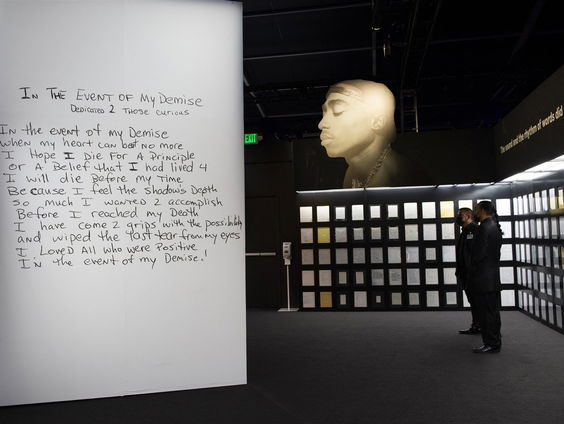 In The Event of My Demise
Dedicated 2 Those curious
In the event of my Demise
when my heart can beat no more
I Hope I Die For A Principle
or A Belief that I had lived 4
I will die Before my Time
Because I feel the shadow's Depth
so much I wanted 2 accomplish
Before I reached my Death
I have come 2 grips with the possibility
and wiped the last tear from my eyes
I Loved All who were Positive
In the event of my Demise!
EXIT
The sound and the rhythm of words did